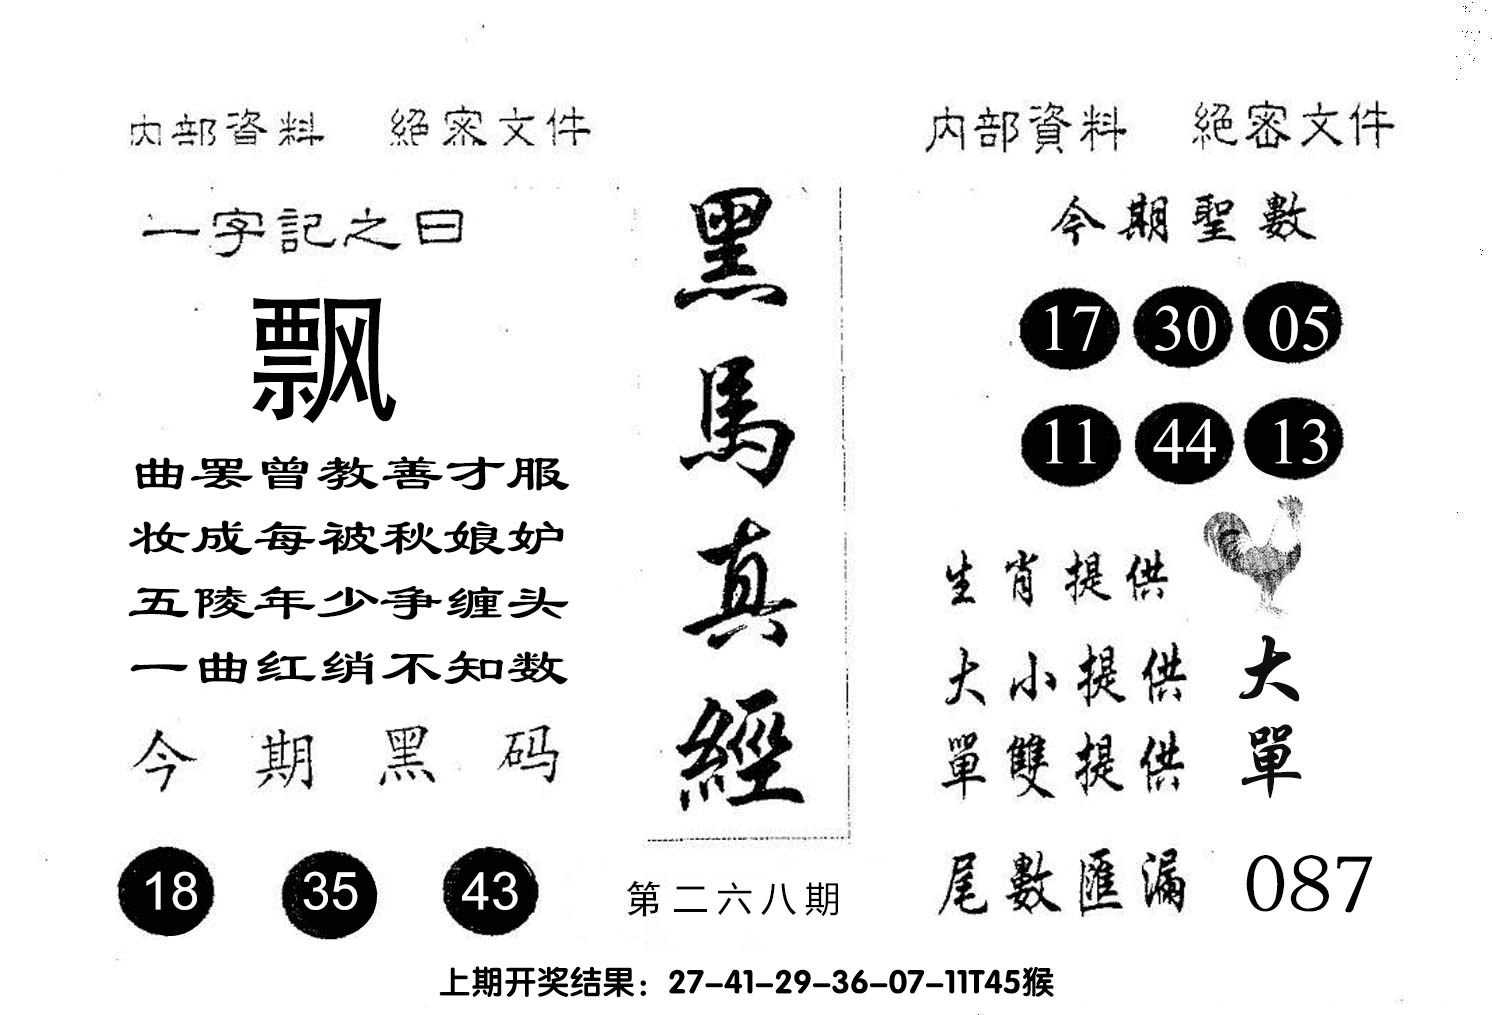 内部資料 絕密文件
一字記之曰
飘
曲罢曾教善才服
妆成每被秋娘妒
五陵年少争缠头
一曲红绡不知数
今期黑码
18 35 43
黑馬真經
第二六八期
内部資料 絕密文件
今期聖數
17 30 05
11 44 13
生肖提供
大小提供 大
單雙提供 單
尾數匯漏 087
上期开奖结果：27-41-29-36-07-11T45猴